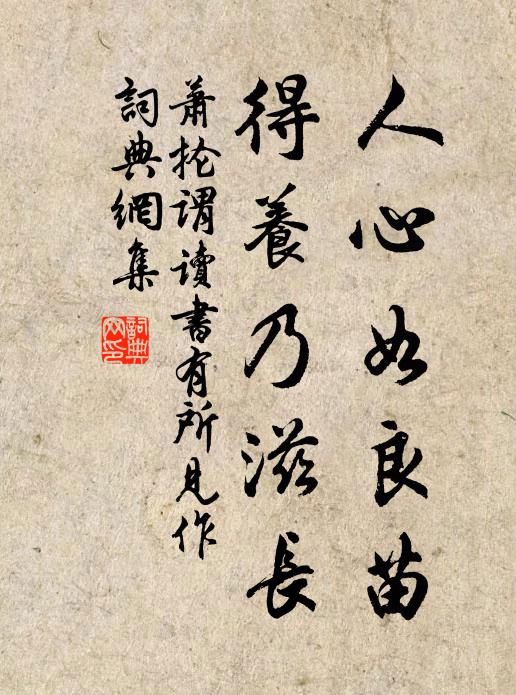 人心如良苗
得養乃滋長
蕭掄謂讀書有所見作
詞典網集
詞典網印